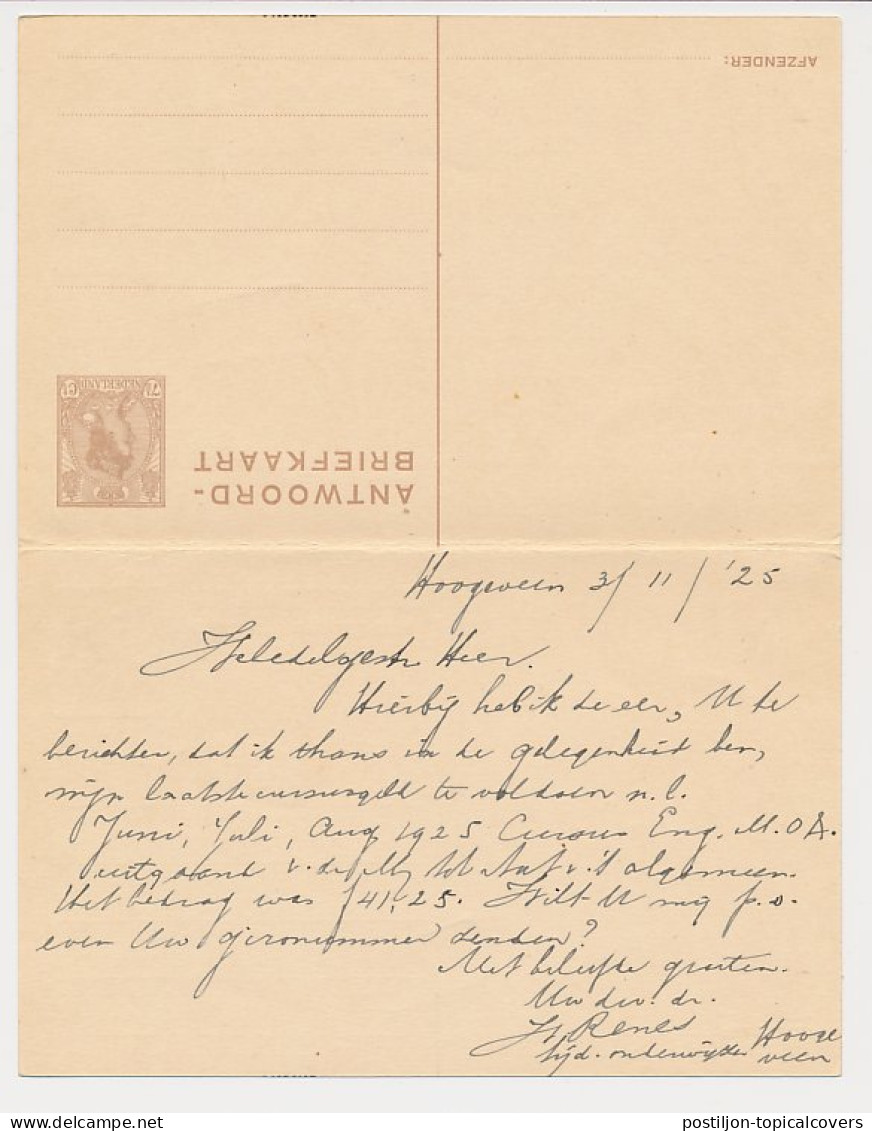 AFZENDER:
ANTWOORD-
BRIEFKAART
NEDERLAND
7½ Ct
Hoogeveen 3/11/'25
Weledelgestr. Heer.
Hierbij heb ik de eer, U te
berichten, dat ik thans in de gelegenheid ben,
mijn laatste cursusgeld te voldoen n.l.
Juni, Juli, Aug 1925 Cursus Eng. M.O A.
uitgaand v. de Mij tot Nut v. 't algemeen.
Het bedrag was ƒ41,25. Wilt U mij p.o.
even Uw gironummer zenden?
Met beleefde groeten.
Uw dw. dr.
Renes
tijd. onderwijzer Hooge
veen
postiljon-topicalcovers